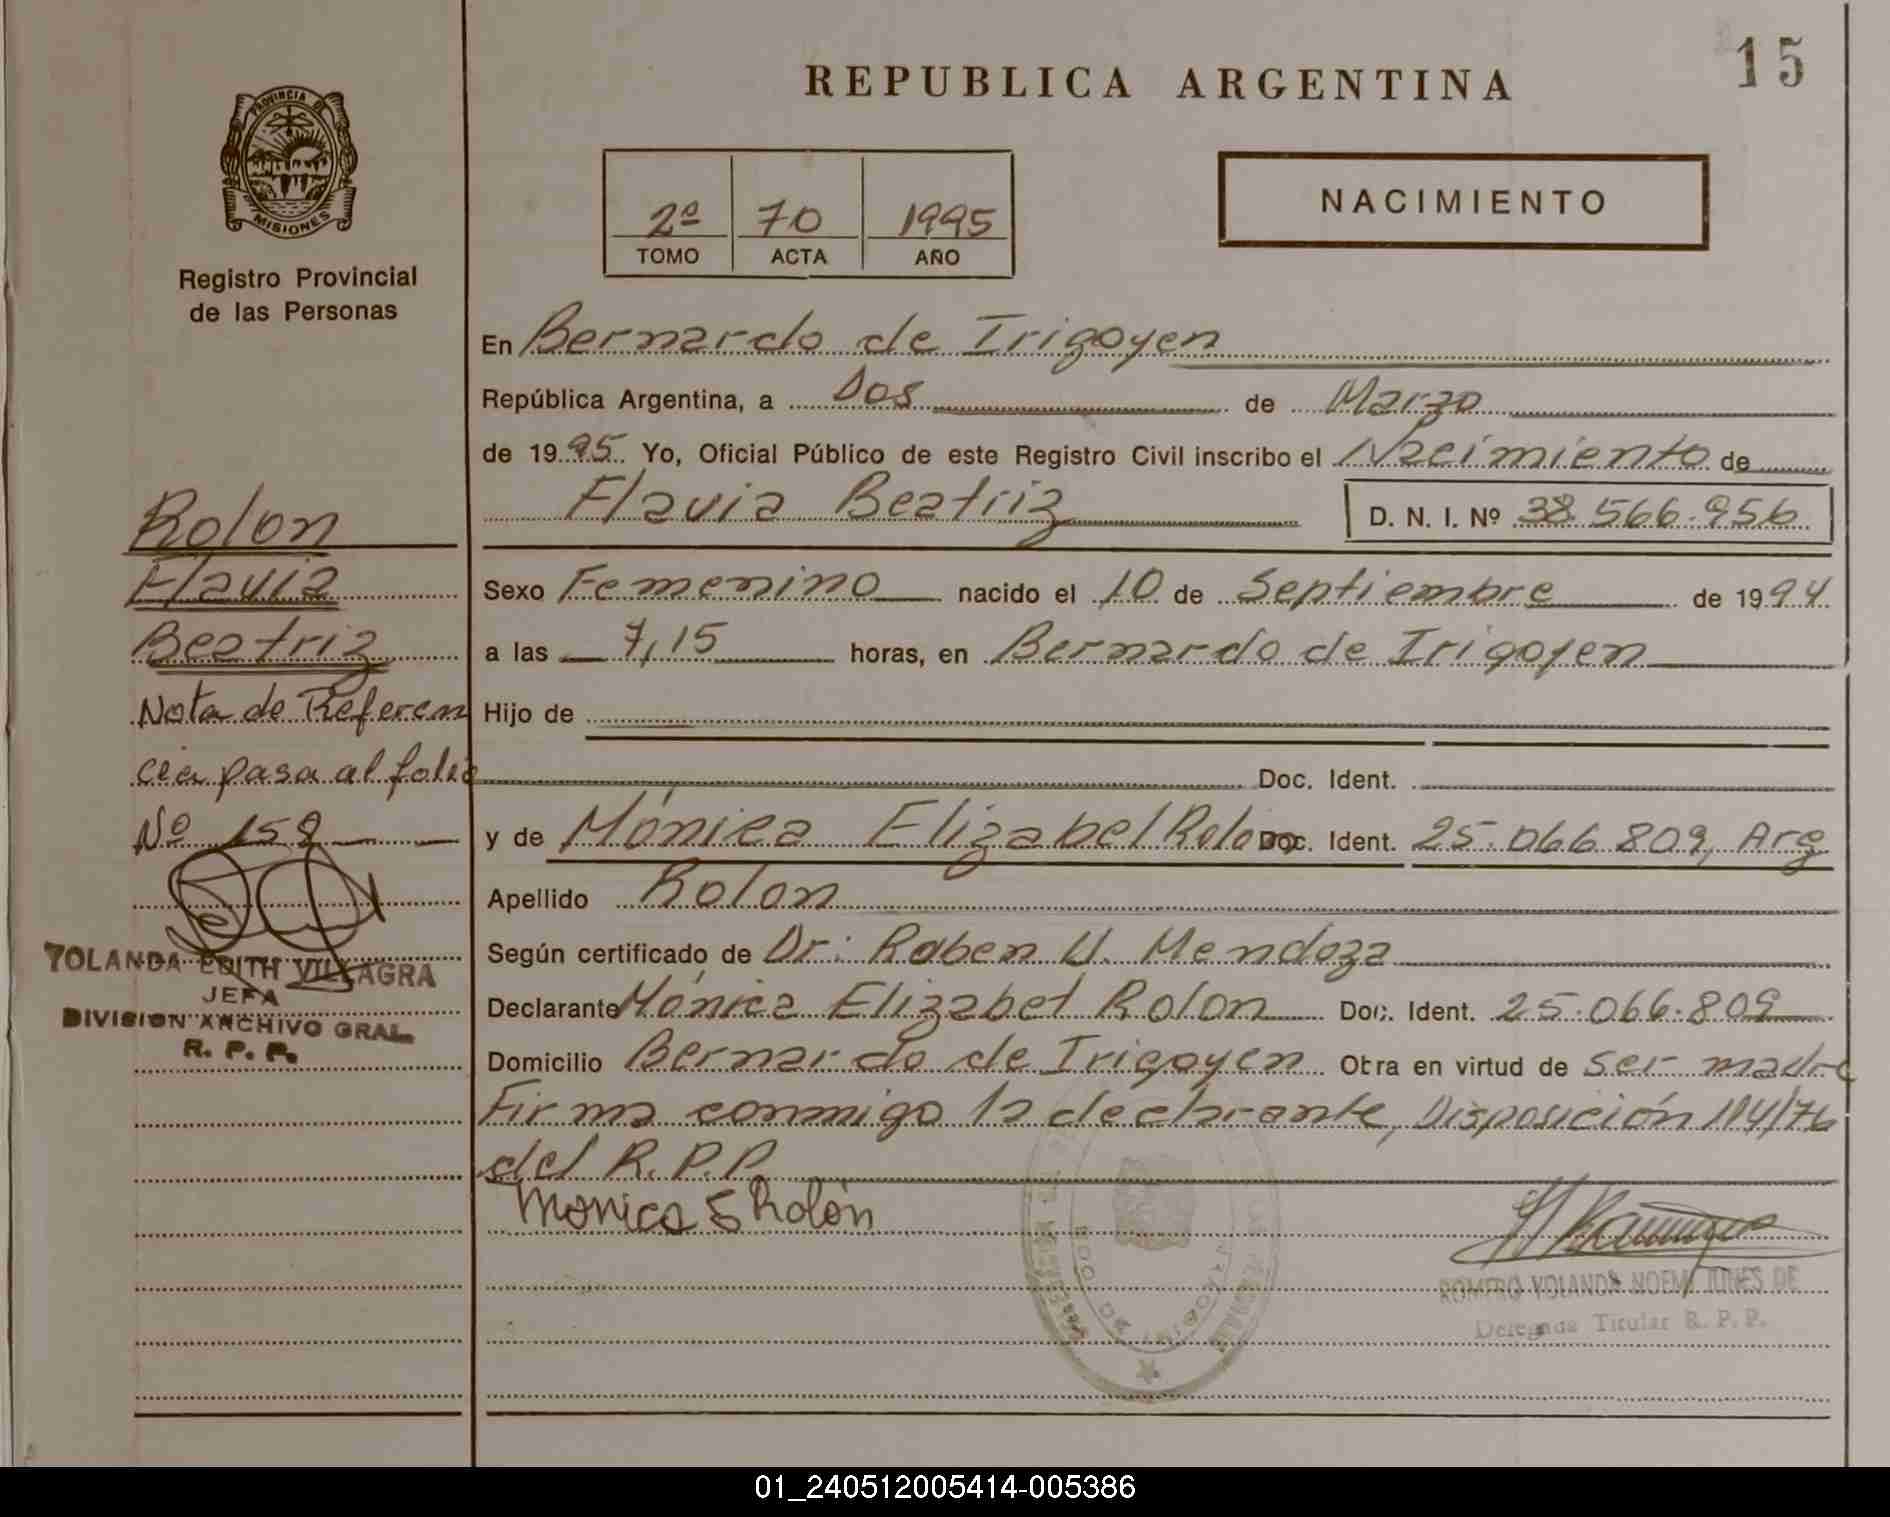 15
REPUBLICA ARGENTINA
PROVINCIA DE
MISIONES
Registro Provincial
de las Personas
2º 70 1995
TOMO ACTA AÑO
NACIMIENTO
En Bernardo de Irigoyen
República Argentina, a Dos de Marzo
de 1995 Yo, Oficial Público de este Registro Civil inscribo el Nacimiento de
Flavia Beatriz D. N. I. Nº 38.566.956
Rolon
Flavia
Beatriz
Nota de Referen
cia pasa al folio
Nº 158
YOLANDA EDITH VILLAGRA
JEFA
DIVISION ARCHIVO GRAL.
R. P. P.
Sexo Femenino nacido el 10 de Septiembre de 1994
a las 7,15 horas, en Bernardo de Irigoyen
Hijo de
Doc. Ident.
y de Mónica Elizabel Rolon Doc. Ident. 25.066.809, Arg
Apellido Rolon
Según certificado de Dr: Raben U. Mendoza
Declarante Mónica Elizabet Rolon Doc. Ident. 25.066.809
Domicilio Bernardo de Irigoyen Otra en virtud de ser madre
Firma conmigo la declarante, Disposición 114/76
del R.P.P.
Monica E Rolón
ROMERO YOLANDA NOEMI JUNES DE
Delegada Titular R. P. P.
01_240512005414-005386